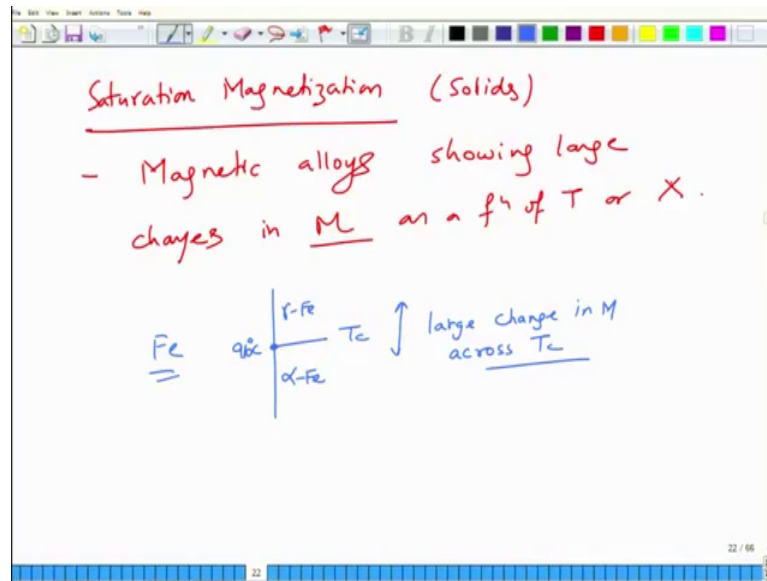 File Edit View Insert Actions Tools Help
Saturation Magnetization (Solids)
- Magnetic alloys showing large
changes in M as a fⁿ of T or X.
γ-Fe
Fe Tc large change in M
across Tc
α-Fe
22 / 66
22